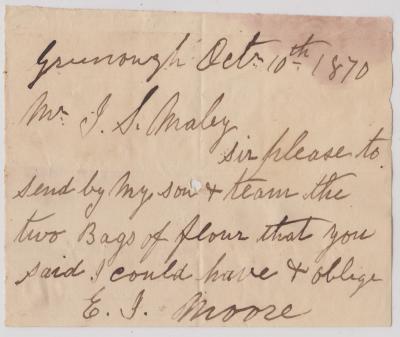 Grunough Oct. 10th 1870
Mr. J. S. Maley
sir please to
send by My son & team the
two Bags of flour that you
said I could have & oblege
E. J. Moore